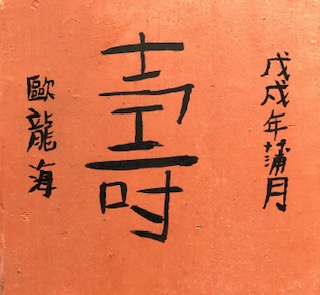 戊戌年蒲月
壽
歐龍海